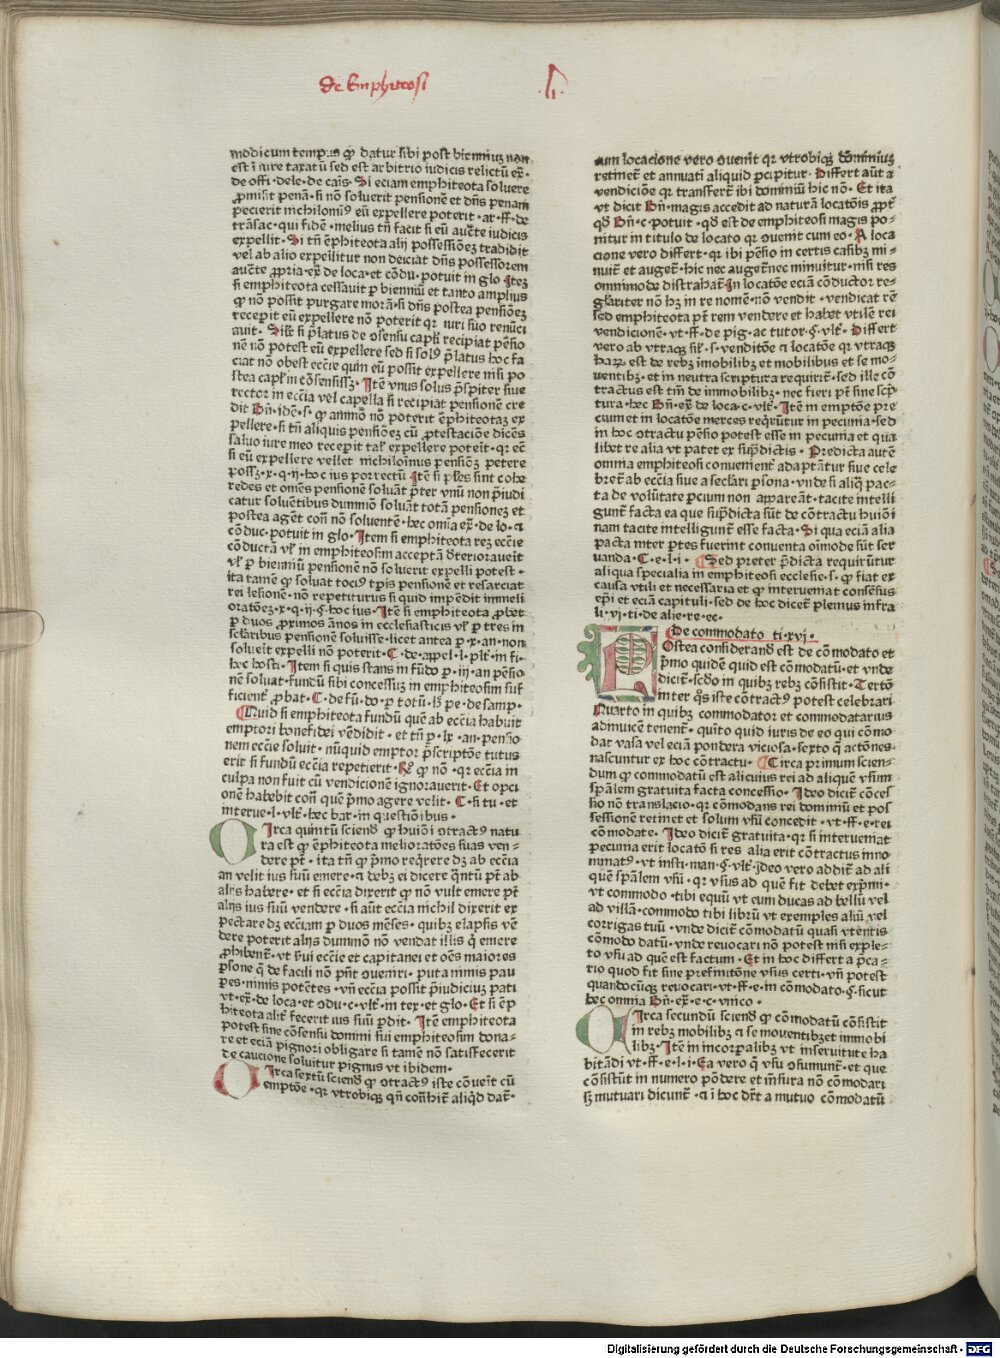 de Emphitеosi
modicum tempus qꝫ datur sibi post bienniuꝫ non
est ī iure taxatū sed est arbitrio iudicis relictū ex̄·
de offi·dele·de caūs·Si eciam emphiteota soluere
ꝓmisit penā·si nō soluerit pensionē et dn̄s penam
pecierit nichilomī⁹ eū expellere poterit·ar·ff·de
trāsac·qui fidē·melius tn̄ facit si eū auc̄te iudicis
expellit·Si tn̄ ēphiteota alij possessiōeꝫ tradidit
vel ab alio expellitur non deiciat dn̄s possessorem
auc̄te ꝓpria·ex̄·de loca·et cōdu·potuit in glo·Iteꝫ
si emphiteota cessauit ꝑ bienniū et tanto amplius
ꝙ nō possit purgare morā·si dn̄s postea pensiōeꝫ
recepit eū expellere nō poterit qꝛ iuri suo renūci
auit·Sil̄r si p̄latus de ↄsensu capl̄i recipiat pēsio
nē nō potest eū expellere sed si sol⁹ p̄latus hoc fa
ciat nō obest eccīe quin eū possit expellere nisi po
stea capl̄m cōsenssiꝫ·Itē vnus solus p̄sꝑiter siue
rector in ecc̄ia vel capella si recipiat pensionē cre
dit Bn̄·idē·s·ꝙ ammō nō poterit ēphiteotaꝫ ex
pellere·si tn̄ aliquis pensiōeꝫ cū ꝓtestaciōe dicēs
saluo iure meo recepit tal̄ expellere poteit·qꝛ et̄
si eū expellere vellet nichilomīus pensiōeꝫ petere
possꝫ·x·q·ij·hoc ius porrectū·Itē si ples sint cohe
redes et omēs pensionē soluāt p̄ter vnū non p̄iudi
catur soluētibus dummō soluāt totā pensioneꝫ et
postea aget con̄ nō soluentē·hec om̄ia ex̄·de lo·ꞇ
cōduc·potuit in glo·Item si emphiteota reꝫ eccīe
cōductā vl̄ in emphiteosim acceptā deteriorauerit
vl̄ ꝑ bienniū pensionē nō soluerit expelli potest·
ita tamē ꝙ soluat toci⁹ tꝑis pensionē et resarciat
rei lesionē·nō repetiturus si quid impēdit immeli
oratōeꝫ·x·q·ij·ꝭ·hoc ius·Itē si emphiteota ꝓbet
ꝑ duos ꝓximos ānos in ecclesiasticis vl̄ ꝑ tres in
sclaribus pensionē soluisse·licet antea ꝑ·x·an·non
soluerit expelli nō poterit·C·de appel·l·pl̄t·in fi·
hec hosti·Item si quis stans in fūdo ꝑ·iij·an pēsio
nē soluat·fundū sibi concessuꝫ in emphiteosim suf
ficienter ꝓbat·C·de fū·do·ꝑ totū·lꝫ pe·de samp·
Quid si emphiteota fundū quē ab ecc̄ia habuit
emptori bonefidei vēdidit·et tn̄ ꝑ·lx·an·pensio
nem eccīe soluit·nūquid emptor p̄scriptōe tutus
erit si fundū ecc̄ia repetierit·Rᵒ ꝙ nō·qꝛ ecc̄ia in
culpa non fuit cū vendicionē ignorauerit·Et opci
onē habebit con̄ quē p̄mo agere velit·C·si tu·et
interue·l·vlt̄·hec bar·in questiōibus·
Circa quintū sciend̄ ꝙ huiōi ↄtract⁹ natu
ra est ꝙ ēphiteota melioratōes suas ven-
dere pt̄·ita tn̄ ꝙ p̄mo req̄rere dꝫ ab ecc̄ia
an velit ius suū emere·ꞇ debꝫ ei dicere q̄ntū pt̄ ab
alijs habere·et si ecc̄ia dixerit ꝙ nō vult emere pt̄
alijs ius suū vendere·si aūt ecc̄ia nichil dixerit ex
pectare dꝫ ecc̄iam ꝑ duos mēses·quibꝫ elapsis vē
dere poterit alijs dummō nō vendat illis q̄ emere
ꝓhibent̄·vt s̄ui eccīe et capitanei et oēs maiores
ꝑsone q̄ de facili nō pn̄t ↄueniri·puta nimis pau
ꝑes·nimis potētes·vn̄ ecc̄ia possit p̄iudiciuꝫ pati
vt·ex̄·de loca·et ↄdu·c·vlt̄·in tex·et glo·Et si ēp
hiteota alit̄ fecerit ius suū ꝑdit·Itē emphiteota
potest sine cōsensu domini sui emphiteosim dona-
re et eciā pignori obligare si tamē nō satisfecerit
de caucione soluitur pignus vt ibidem·
Circa sextū sciend̄ ꝙ ↄtract⁹ iste cōuēit cū
emptōe·qꝛ vtrobiqꝫ qn̄ cōn̄hit̄ aliq̄d dat̄·
cum locacione vero ↄuenit qꝛ vtrobiqꝫ dominiuꝫ
retinet̄ et annuatī aliquid ꝑcipitur·Differt aūt a
vendiciōe qꝛ transfert̄ ibi dominiū hic nō·Et ita
vt dicit Bn̄·magis accedit ad naturā locatōis ꝓpt̄
qd̄ Bn̄·c·potuit·qd̄ est de emphiteosi magis po-
nitur in titulo de locato qꝛ ↄuenit cum eo·A loca
cione vero differt·qꝛ ibi pēsio in certis casibꝫ mi-
nuit̄ et auget̄·hic nec auget̄ nec minuitur·nisi res
omnimode distrahat̄·In locatōe eciā cōductor re-
gl̄ariter nō hꝫ in re nomē·nō vendit·vendicat rē
sed emphiteota pt̄ rem vendere et habet vtilē rei
vendicionē·vt·ff·de pig·ac tutor·ꝭ·vlt̄·Differt
vero ab vtraqꝫ sil̄·s·venditōe ꞇ locatōe qꝛ vtraqꝫ
haꝝ est de rebꝫ īmobilibꝫ et mobilibus et se mo-
uentibꝫ·et in neutra scriptura requirit̄·sed ille cō
tractus est tm̄ de immobilibꝫ·nec fieri pt̄ sine scp̄
tura·hec Bn̄·ex̄·de loca·c·vlt̄·Itē in emptōe pre
cium et in locatōe merces req̄rūtur in pecunia·sed
in hoc ↄtractu pēsio potest esse in pecunia et qua
libet re alia vt patet ex sup̄dictis·Predicta autē
omnia emphiteosi conueniunt adaptātur siue cele
bret̄ ab ecc̄ia siue a secl̄ari ꝑsona·vnde si aliq̄ pac-
ta de volūtate ꝑcium non appareāt·tacite intelli
gunt̄ facta ea que sup̄dicta sūt de cōtractu huiōi
nam tacite intelligunt̄ esse facta·Si qua eciā alia
pacta inter ꝑtes fuerint conuenta oīmode sūt ser
uanda·C·e·l·i·Sed preter p̄dicta requirūtur
aliqua specialia in emphiteosi ecclesie·s·ꝙ fiat ex
causa vtili et necessaria et ꝙ interueniat consēsus
ep̄i et eciā capituli·sed de hoc dicet̄ plenius infra
li·vi·ti·de alie·re·ec·
de commodato ti·xvi·
Postea considerand̄ est de cōmodato et
p̄mo quidē quid est cōmodatū·et vnde
dicit̄·scd̄o in quibꝫ rebꝫ cōsistit·Tertō
inter q̄s iste cōtract⁹ potest celebrari
Quarto in quibꝫ commodator et commodatarius
adinuicē tenent̄·quīto quid iuris de eo qui cōmo
dat vasa vel eciā pondera viciosa·sexto q̄ actōnes
nascuntur ex hoc cōtractu·Circa primum scien-
dum ꝙ commodatū est alicuius rei ad aliquē vsum
sp̄alem gratuita facta concessio·Ideo dicit̄ cōces
sio nō translacio·qꝛ cōmodans rei dominiū et pos
sessionē retinet et solum vsū concedit·vt·ff·e·rei
cōmodate·Ideo dicit̄ gratuita·qꝛ si interueniat
pecunia erit locatō si res alia erit cōtractus inno-
minat⁹·vt insti·man·ꝭ·vlt̄·Ideo vero addit̄ ad ali
quē sp̄alem vsū·qꝛ vsus ad quē fit debet exp̄mi·
vt commodo·tibi equū vt cum ducas ad bellū vel
ad villā·commodo tibi librū vt exemples aliū vel
corrigas tuū·vnde dicit̄ cōmodatū quasi vtentis
cōmodo datū·vnde reuocari nō potest nisi exple-
to vsu ad quē est factum·Et in hoc differt a p̄ca-
rio quod fit sine prefinitōne vsus certi·vn̄ potest
quandocūqꝫ reuocari·vt·ff·e·in cōmodato·ꝭ·sicut
hec omnia Bn̄·ex̄·e·c·vnico·
Circa secundū sciend̄ ꝙ cōmodatū cōsistit
in rebꝫ mobilibꝫ ꞇ se mouentibꝫ et immobi
libꝫ·Itē in incorꝑalibꝫ vt inseruitute ha
bitādi vt·ff·e·l·i·Ea vero q̄ vsu ↄsumunt̄·et que
cōsistūt in numero pōdere et mēsura nō cōmodari
sꝫ mutuari dicunt̄·ꞇ ī hoc drt̄ a mutuo cōmodatū·
Digitalisierung gefördert durch die Deutsche Forschungsgemeinschaft - DFG